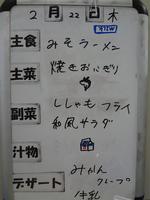 2月22日木
主食 みそラーメン
主菜 焼きおにぎり
副菜 ししゃもフライ
和風サラダ
汁物
デザート みかん
クレープ
牛乳